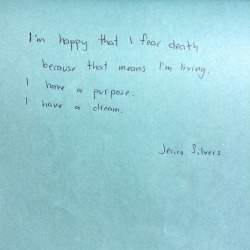 I'm happy that I fear death
because that means I'm living.
I have a purpose.
I have a dream.
Jerica Silvers